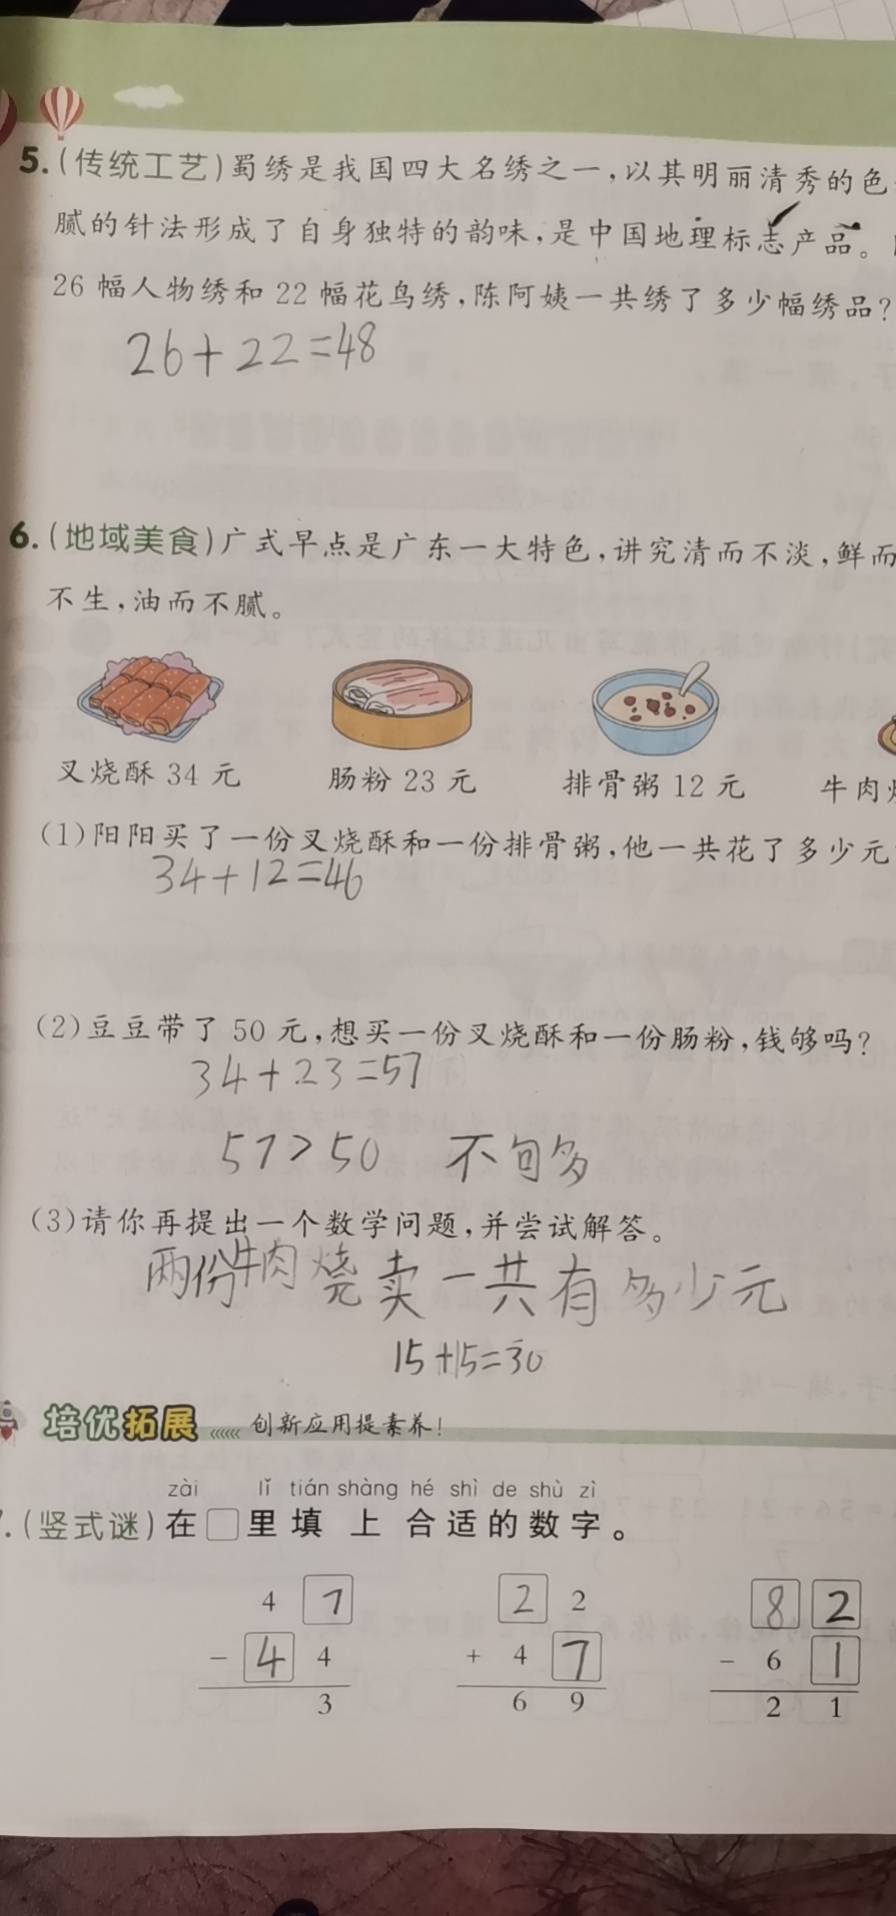 5.(传统工艺)蜀绣是我国四大名绣之一,以其明丽清秀的色
腻的针法形成了自身独特的韵味,是中国地理标志产品。
26 幅人物绣和 22 幅花鸟绣,陈阿姨一共绣了多少幅绣品?
26+22=48
6.(地域美食)广式早点是广东一大特色,讲究清而不淡,鲜而
不生,油而不腻。
叉烧酥 34 元 肠粉 23 元 排骨粥 12 元 牛肉
(1)阳阳买了一份叉烧酥和一份排骨粥,他一共花了多少元
34+12=46
(2)豆豆带了 50 元,想买一份叉烧酥和一份肠粉,钱够吗?
34+23=57
57>50 不够
(3)请你再提出一个数学问题,并尝试解答。
两份牛肉烧卖一共有多少元
15+15=30
培优拓展 ‹‹‹‹‹‹ 创新应用提素养!
zài lǐ tián shàng hé shì de shù zì
.(竖式谜)在□里填上合适的数字。
4 7 2 2 8 2
- 4 4 + 4 7 - 6 1
3 6 9 2 1